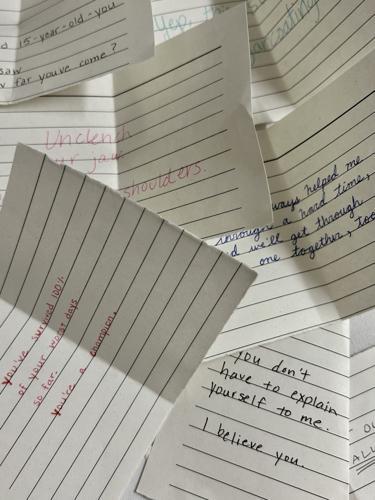 15-year-old-you
saw
far you've come?
Yep, th
Unclench
ur jaw
shoulders.
ways helped me
through a hard time,
d we'll get through
one together, too
you've survived 100%
of your worst days
so far.
you're a champion.
you don't
have to explain
yourself to me.
I believe you.